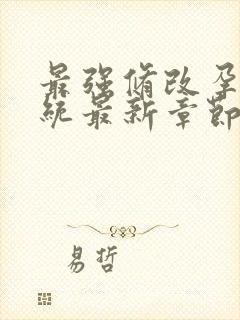 最强脩改孕
统最新章节
易哲